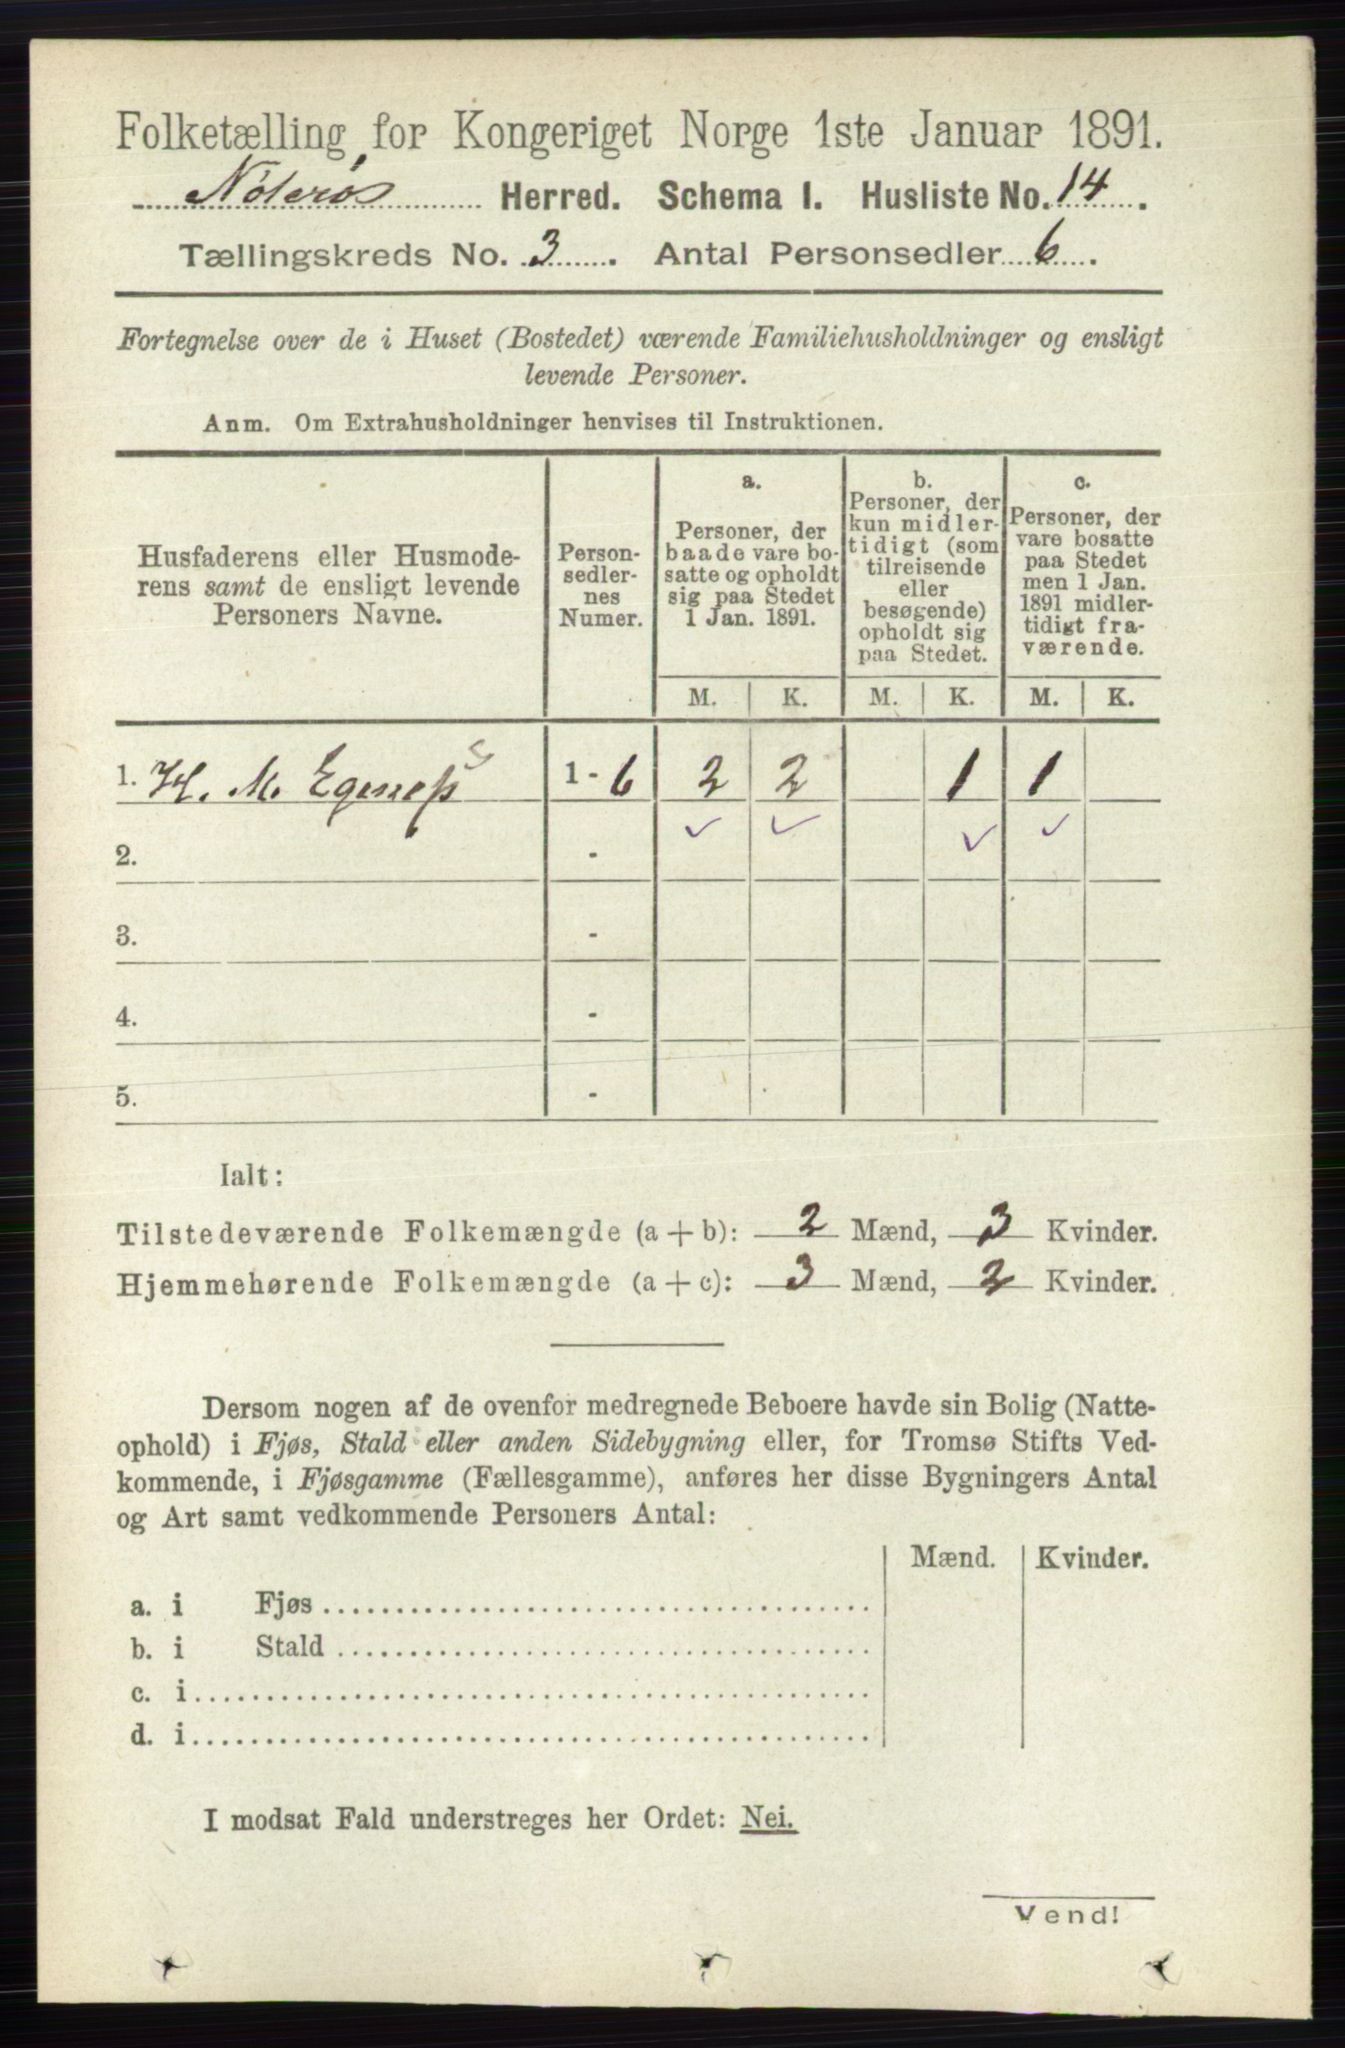 Folketælling for Kongeriget Norge 1ste Januar 1891.
Nøterøs Herred. Schema I. Husliste No. 14.
Tællingskreds No. 3. Antal Personsedler 6.
Fortegnelse over de i Huset (Bostedet) værende Familiehusholdninger og ensligt
levende Personer.
Anm. Om Extrahusholdninger henvises til Instruktionen.
Husfaderens eller Husmode-
rens samt de ensligt levende
Personers Navne.
Person-
sedler-
nes
Numer.
a.
Personer, der
baade vare bo-
satte og opholdt
sig paa Stedet
1 Jan. 1891.
b.
Personer, der
kun midler-
tidigt (som
tilreisende
eller
besøgende)
opholdt sig
paa Stedet.
c.
Personer, der
vare bosatte
paa Stedet
men 1 Jan.
1891 midler-
tidigt fra-
værende.
M. K. M. K. M. K.
1. H. M. Egeness 1 - 6 2 2 1 1
2. -
3. -
4. -
5. -
Ialt:
Tilstedeværende Folkemængde (a + b): 2 Mænd, 3 Kvinder.
Hjemmehørende Folkemængde (a + c): 3 Mænd, 2 Kvinder.
Dersom nogen af de ovenfor medregnede Beboere havde sin Bolig (Natte-
ophold) i Fjøs, Stald eller anden Sidebygning eller, for Tromsø Stifts Ved-
kommende, i Fjøsgamme (Fællesgamme), anføres her disse Bygningers Antal
og Art samt vedkommende Personers Antal:
Mænd. Kvinder.
a. i Fjøs
b. i Stald
c. i
d. i
I modsat Fald understreges her Ordet: Nei.
Vend!